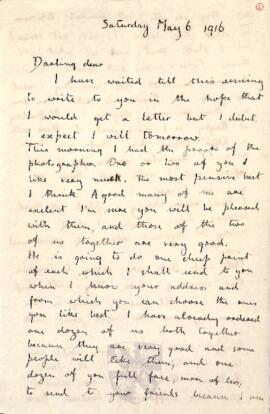 6
Saturday May 6 1916
Darling dear
I have waited till this evening
to write to you in the hope that
I would get a letter but I didnt.
I expect I will tomorrow.
This morning I had the proofs of the
photographer. One or two of you I
like very much, the most pensive best
I think. A good many of me are
exelent I'm sure you will be pleased
with them, and those of the two
of us together are very good.
He is going to do one cheap print
of each which I shall send to you
when I know your address and
from which you can choose the ones
you like best. I have already ordered
one dozen of us both together
because they are very good and some
people will like them; and one
dozen of you full face, more of less,
to send to your friends because I am